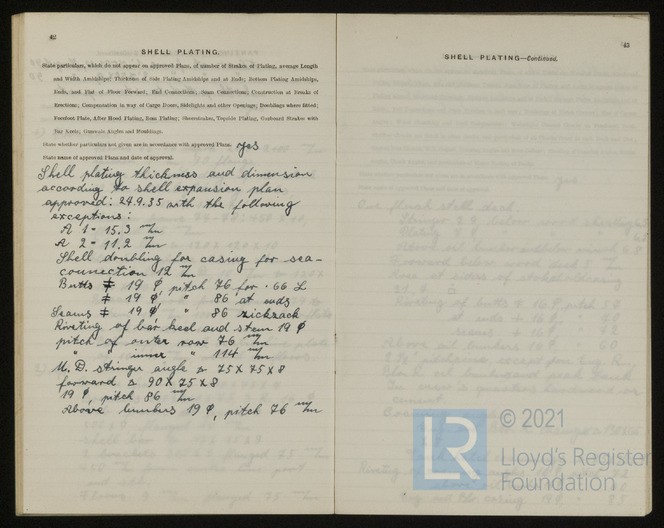 42
SHELL PLATING.
State particulars, which do not appear on approved Plans, of number of Strakes of Plating, average Length
and Width Amidships; Thickness of Side Plating Amidships and at Ends; Bottom Plating Amidships,
Ends, and Flat of Floor Forward; End Connections; Seam Connections; Construction at Breaks of
Erections; Compensation in way of Cargo Doors, Sidelights and other Openings; Doublings where fitted;
Forefoot Plate, After Hood Plating, Boss Plating; Sheerstrakes, Topside Plating, Garboard Strakes with
Bar Keels; Gunwale Angles and Mouldings.
State whether particulars not given are in accordance with approved Plans. yes
State name of approved Plans and date of approval.
Shell plating thickness and dimension
according to shell expansion plan
approved: 24.9.35 with the following
exceptions:
A 1 = 15.3 m/m
A 2 = 11.2 m/m
Shell doubling for casing for sea-
connection 12 m/m
Butts ‡ 19 φ, pitch 76 for .66 L
‡ 19 φ, " 86 at ends
Seams ‡ 19 φ, " 86 zickzack
Riveting of bar keel and stem 19 φ
pitch of outer row 76 m/m
" " inner " 114 m/m
M. D. stringer angle = 75 x 75 x 8
forward = 90 x 75 x 8
19 φ, pitch 86 m/m
Above bunkers 19 φ, pitch 76 m/m
43
SHELL PLATING—Continued.
LR
© 2021
Lloyd's Register
Foundation